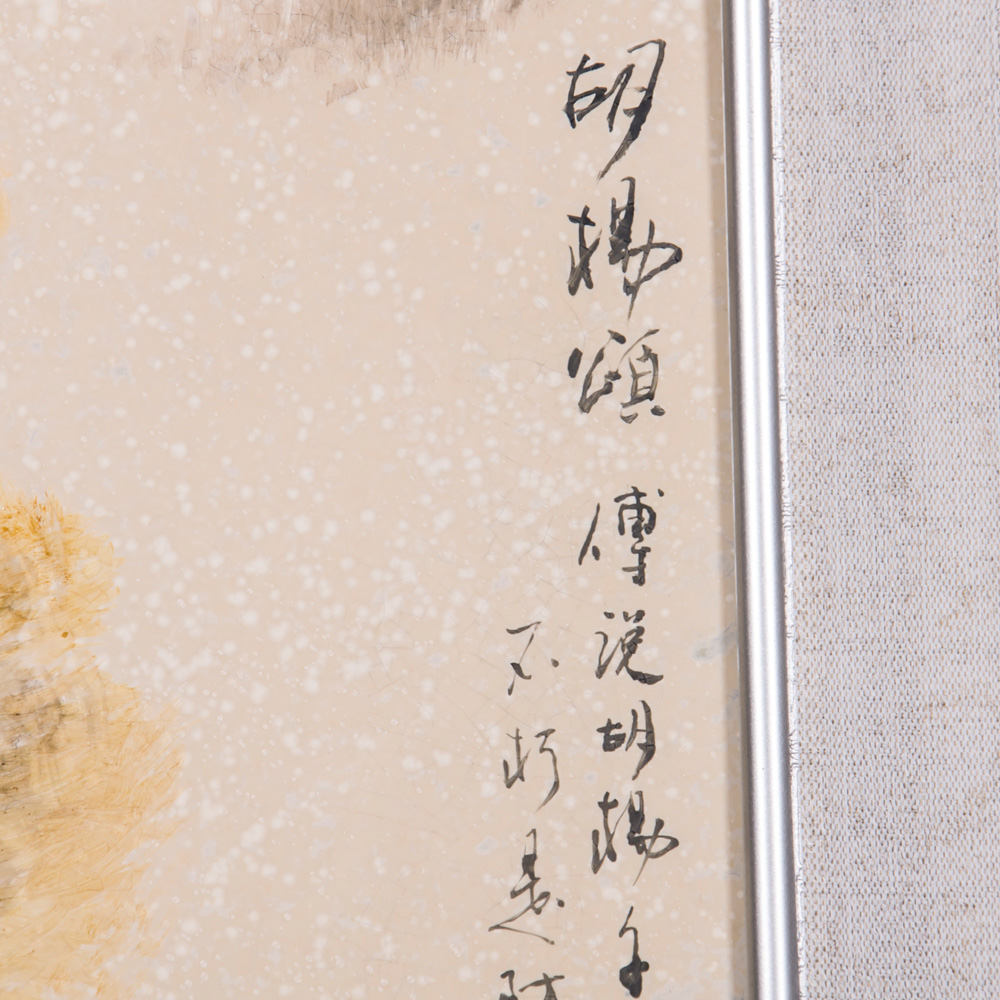 胡楊頌 傳説胡楊千
不朽是